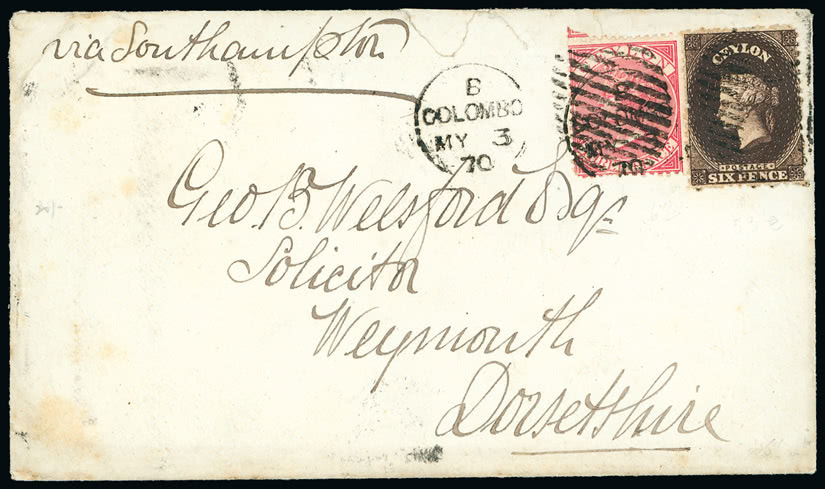 via Southampton
B
COLOMBO
MY 3
70
CEYLON
POSTAGE
SIX PENCE
Geo. B. Welsford Esqr
Solicitor
Weymouth
Dorsetshire